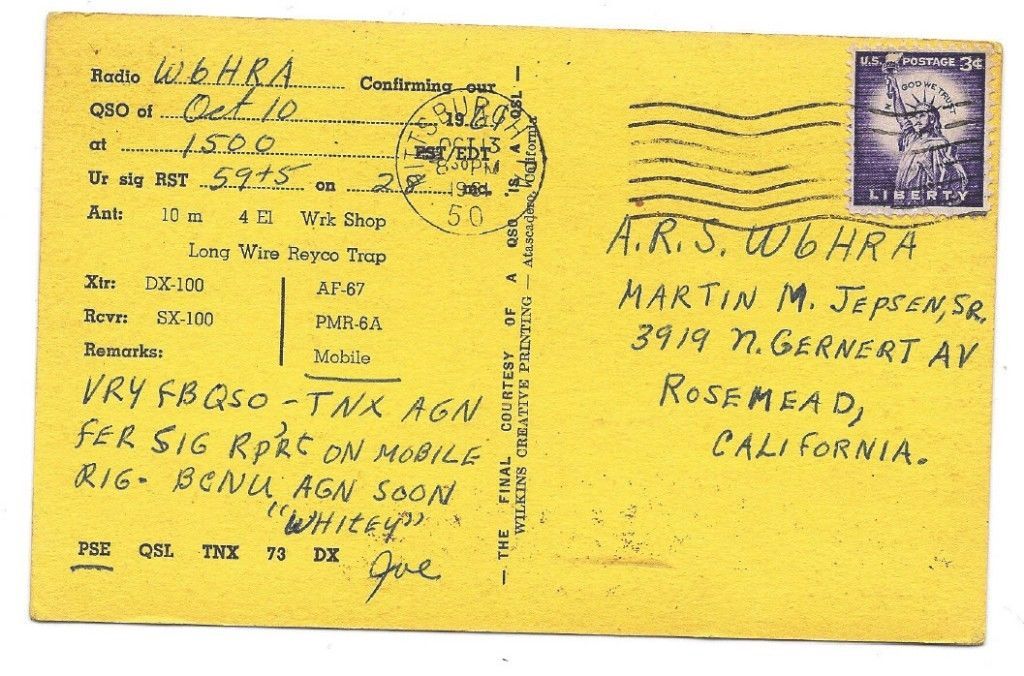 Radio W6HRA Confirming our
QSO of Oct 10 1961
at 1500 PST EDT
Ur sig RST 59+5 on 28 mc.
Ant: 10 m 4 El Wrk Shop
Long Wire Reyco Trap
Xtr: DX-100 AF-67
Rcvr: SX-100 PMR-6A
Remarks: Mobile
VRY FB QSO - TNX AGN
FER SIG RPRT ON MOBILE
RIG - BCNU AGN SOON
"WHITEY"
PSE QSL TNX 73 DX Joe
— THE FINAL COURTESY OF A QSO IS A QSL —
WILKINS CREATIVE PRINTING — Atascadero, California
PITTSBURGH
OCT 13
8 30 PM
1961
50
U.S. POSTAGE 3¢
IN GOD WE TRUST
LIBERTY
A.R.S. W6HRA
MARTIN M. JEPSEN, SR.
3919 N. GERNERT AV
ROSEMEAD,
CALIFORNIA.